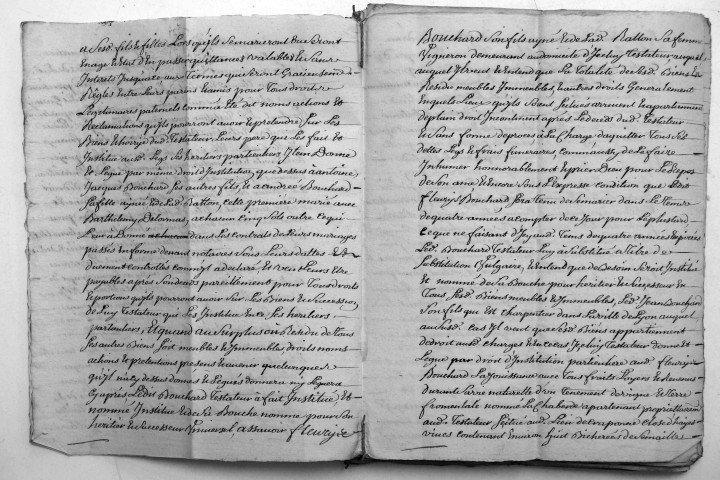 a Sesd. fils & filles Lors qu'ils Se marieront ou Seront
En age & Etat d'En passer quittances valables & Sans
Interets Jusques aux Termes qui Seront Gracieusemt
Réglés Entre Leurs parens & amis pour Tous droits
Légitimaires paternels comme a Eté dit noms actions &
Reclamations qu'ils pourront avoir & pretendre Sur Les
Biens & hoirie dud. Testateur Leurs pere que Les fait &
Institue auxd. Legs Ses heritiers particuliers Item Donne
& Legue par même droit d'Institution que dessus a antoine
Jacques Bouchard Ses autres fils, & a andrée Bouchard
Sa fille aynée & de Lad. Batton, cette premiere mariée avec
Barthelemy Delornas, a chacun Cinq Sols outre ce qui
Leur a Donné dans Les contrats de Leurs mariages
passés En forme devant notaires Sous Leurs dattes &
Duement controllés comm'il a declaré & ven Leurs Etre
payables après Son deceds pareillement pour Tous droits
& portions qu'ils pourront avoir Sur Les Biens & Succession
de Luy Testateur que Les Institue Entre Ses heritiers
particuliers, Et quand au Surplus ou Residu de Tous
Ses autres Biens Soit meubles & Immeubles droits noms
actions & pretentions presens & avenir quelconques
qu'il n'a cy dessus donnés & Legués donnera ny Leguera
Cy après Led. Bouchard Testateur a fait Institué &
nommé Institue & de Sa Bouche nomme pour Son
heritier & Successeur Universel, a Sçavoir fleury
Bouchard Son fils ayné & de Lad. Batton Sa femme
Vigneron demeurant au domicile d'Iceluy Testateur auquel
auquel Il veut & Entend que La Totalité de Sesd. Biens &
Residu meubles Immeubles, & autres droits Generalement
En quels Lieux qu'ils Soient Situés arrivent & appartiennent
de plein droit Incontinent après Le deceds dud. Testateur
& Sans forme de procès a La Charge d'acquitter Tous Ses
dettes Legs & frais funeraires, comm'aussy de Le faire
Inhumer honnorablement & prier Dieu pour Le Repos
de Son ame & Encore Sous L'expresse condition que Led.
fleury Bouchard Sera Tenu de Se marier dans Le Temps
de quatre années a compter de ce Jour pour Le plus tard
& ce que ne faisant d'Icy aud. Tems de quatre années Expirés
Led. Bouchard Testateur Luy a Substitué a Titre de
Substitution Vulgaire, & Entend que de Besoin Seroit Institué
& nommé de Sa Bouche pour heritier & Successeur En
Tous Sesd. Biens meubles & Immeubles, Led. Jean Bouchard
Son fils qui Est Charpentier dans La Ville de Lyon auquel
Aux Susd. cas Il veut que Sesd. Biens appartiennent
de droit aux d. charges & En ce cas Iceluy Testateur donne &
Legue par droit d'Institution particuliere aud. fleury
Bouchard La Jouissance avec Tous fruits Loyers & Revenus
durant Sa vie naturelle d'un Tenement de vigne & Terre
fromentale nommé La Chatende appartenant proprietairement
aud. Testateur Scitué aud. Lieu de Craponne Clos d'hayes
vives contenant Environ huit Bicherées de Semailles